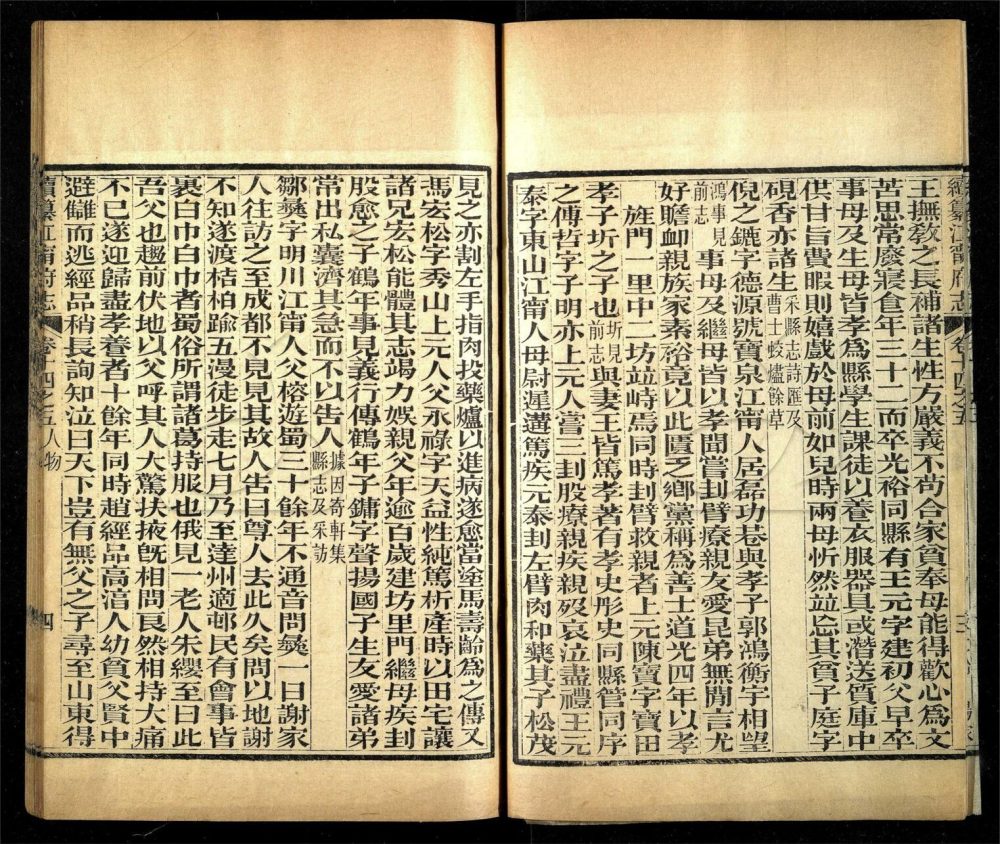 續纂江甯府志 卷十四之五 三
王撫教之長補諸生性方嚴義不尚合家貧奉母能得歡心為文
苦思常廢寢食年三十二而卒光裕同縣有王元字建初父早卒
事母及生母皆孝為縣學生課徒以養衣服器具或潛送質庫中
供甘旨費暇則嬉戲於母前如兒時兩母忻然竝忘其貧子庭字
硯香亦諸生采縣志詩匯及曹士蛟燼餘草
倪之鑣字德源號寶泉江甯人居磊功巷與孝子郭鴻衡宇相望
鴻事見前志事母及繼母皆以孝聞嘗刲臂療親友愛昆弟無閒言尤
好贍卹親族家素裕竟以此匱乏鄉黨稱為善士道光四年以孝
旌門一里中二坊竝峙焉同時刲臂救親者上元陳寶字寶田
孝子圻之子也圻見前志與妻王皆篤孝著有孝史彤史同縣管同序
之傳哲字子明亦上元人嘗三刲股療親疾親歿哀泣盡禮王元
泰字東山江甯人母尉遲遘篤疾元泰刲左臂肉和藥其子松茂
見之亦割左手指肉投藥爐以進病遂愈當塗馬壽齡為之傳又
馬宏松字秀山上元人父永祿字天益性純篤析產時以田宅讓
諸兄宏松能體其志竭力娛親父年逾百歲建坊里門繼母疾刲
股愈之子鶴年事見義行傳鶴年子鏞字聲揚國子生友愛諸弟
常出私囊濟其急而不以告人據因寄軒集縣志及采訪
鄒彝字明川江甯人父榕遊蜀三十餘年不通音問彝一日謝家
人往訪之至成都不見見其故人告曰尊人去此久矣問以地謝
不知遂渡桔柏踰五漫徒步走七月乃至達州適邨民有會事皆
裹白巾白巾者蜀俗所謂諸葛持服也俄見一老人朱纓至曰此
吾父也趨前伏地以父呼其人大驚扶掖旣相問艮然相持大痛
不已遂迎歸盡孝養者十餘年同時趙經品高淯人幼貧父賢中
避讎而逃經品稍長詢知泣曰天下豈有無父之子尋至山東得
續纂江甯府志 卷十四之五人物 四